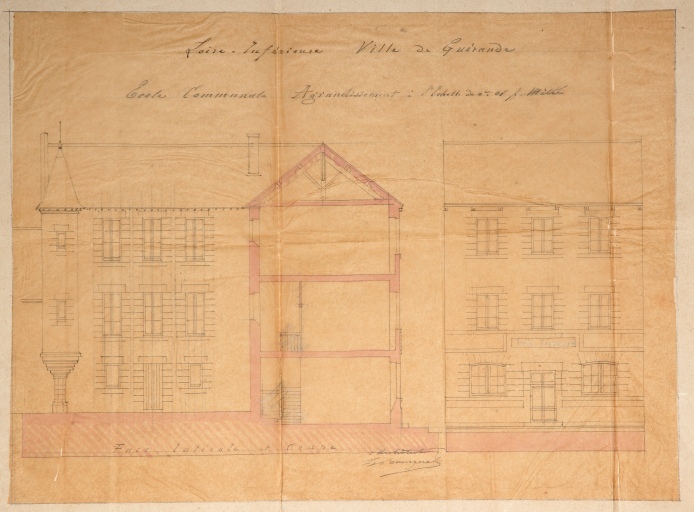 Loire-Inférieure Ville de Guérande
Ecole Communale Agrandissement : l'Echelle de 0m,01 p. Mètre
Face latérale et Coupe
l'architecte